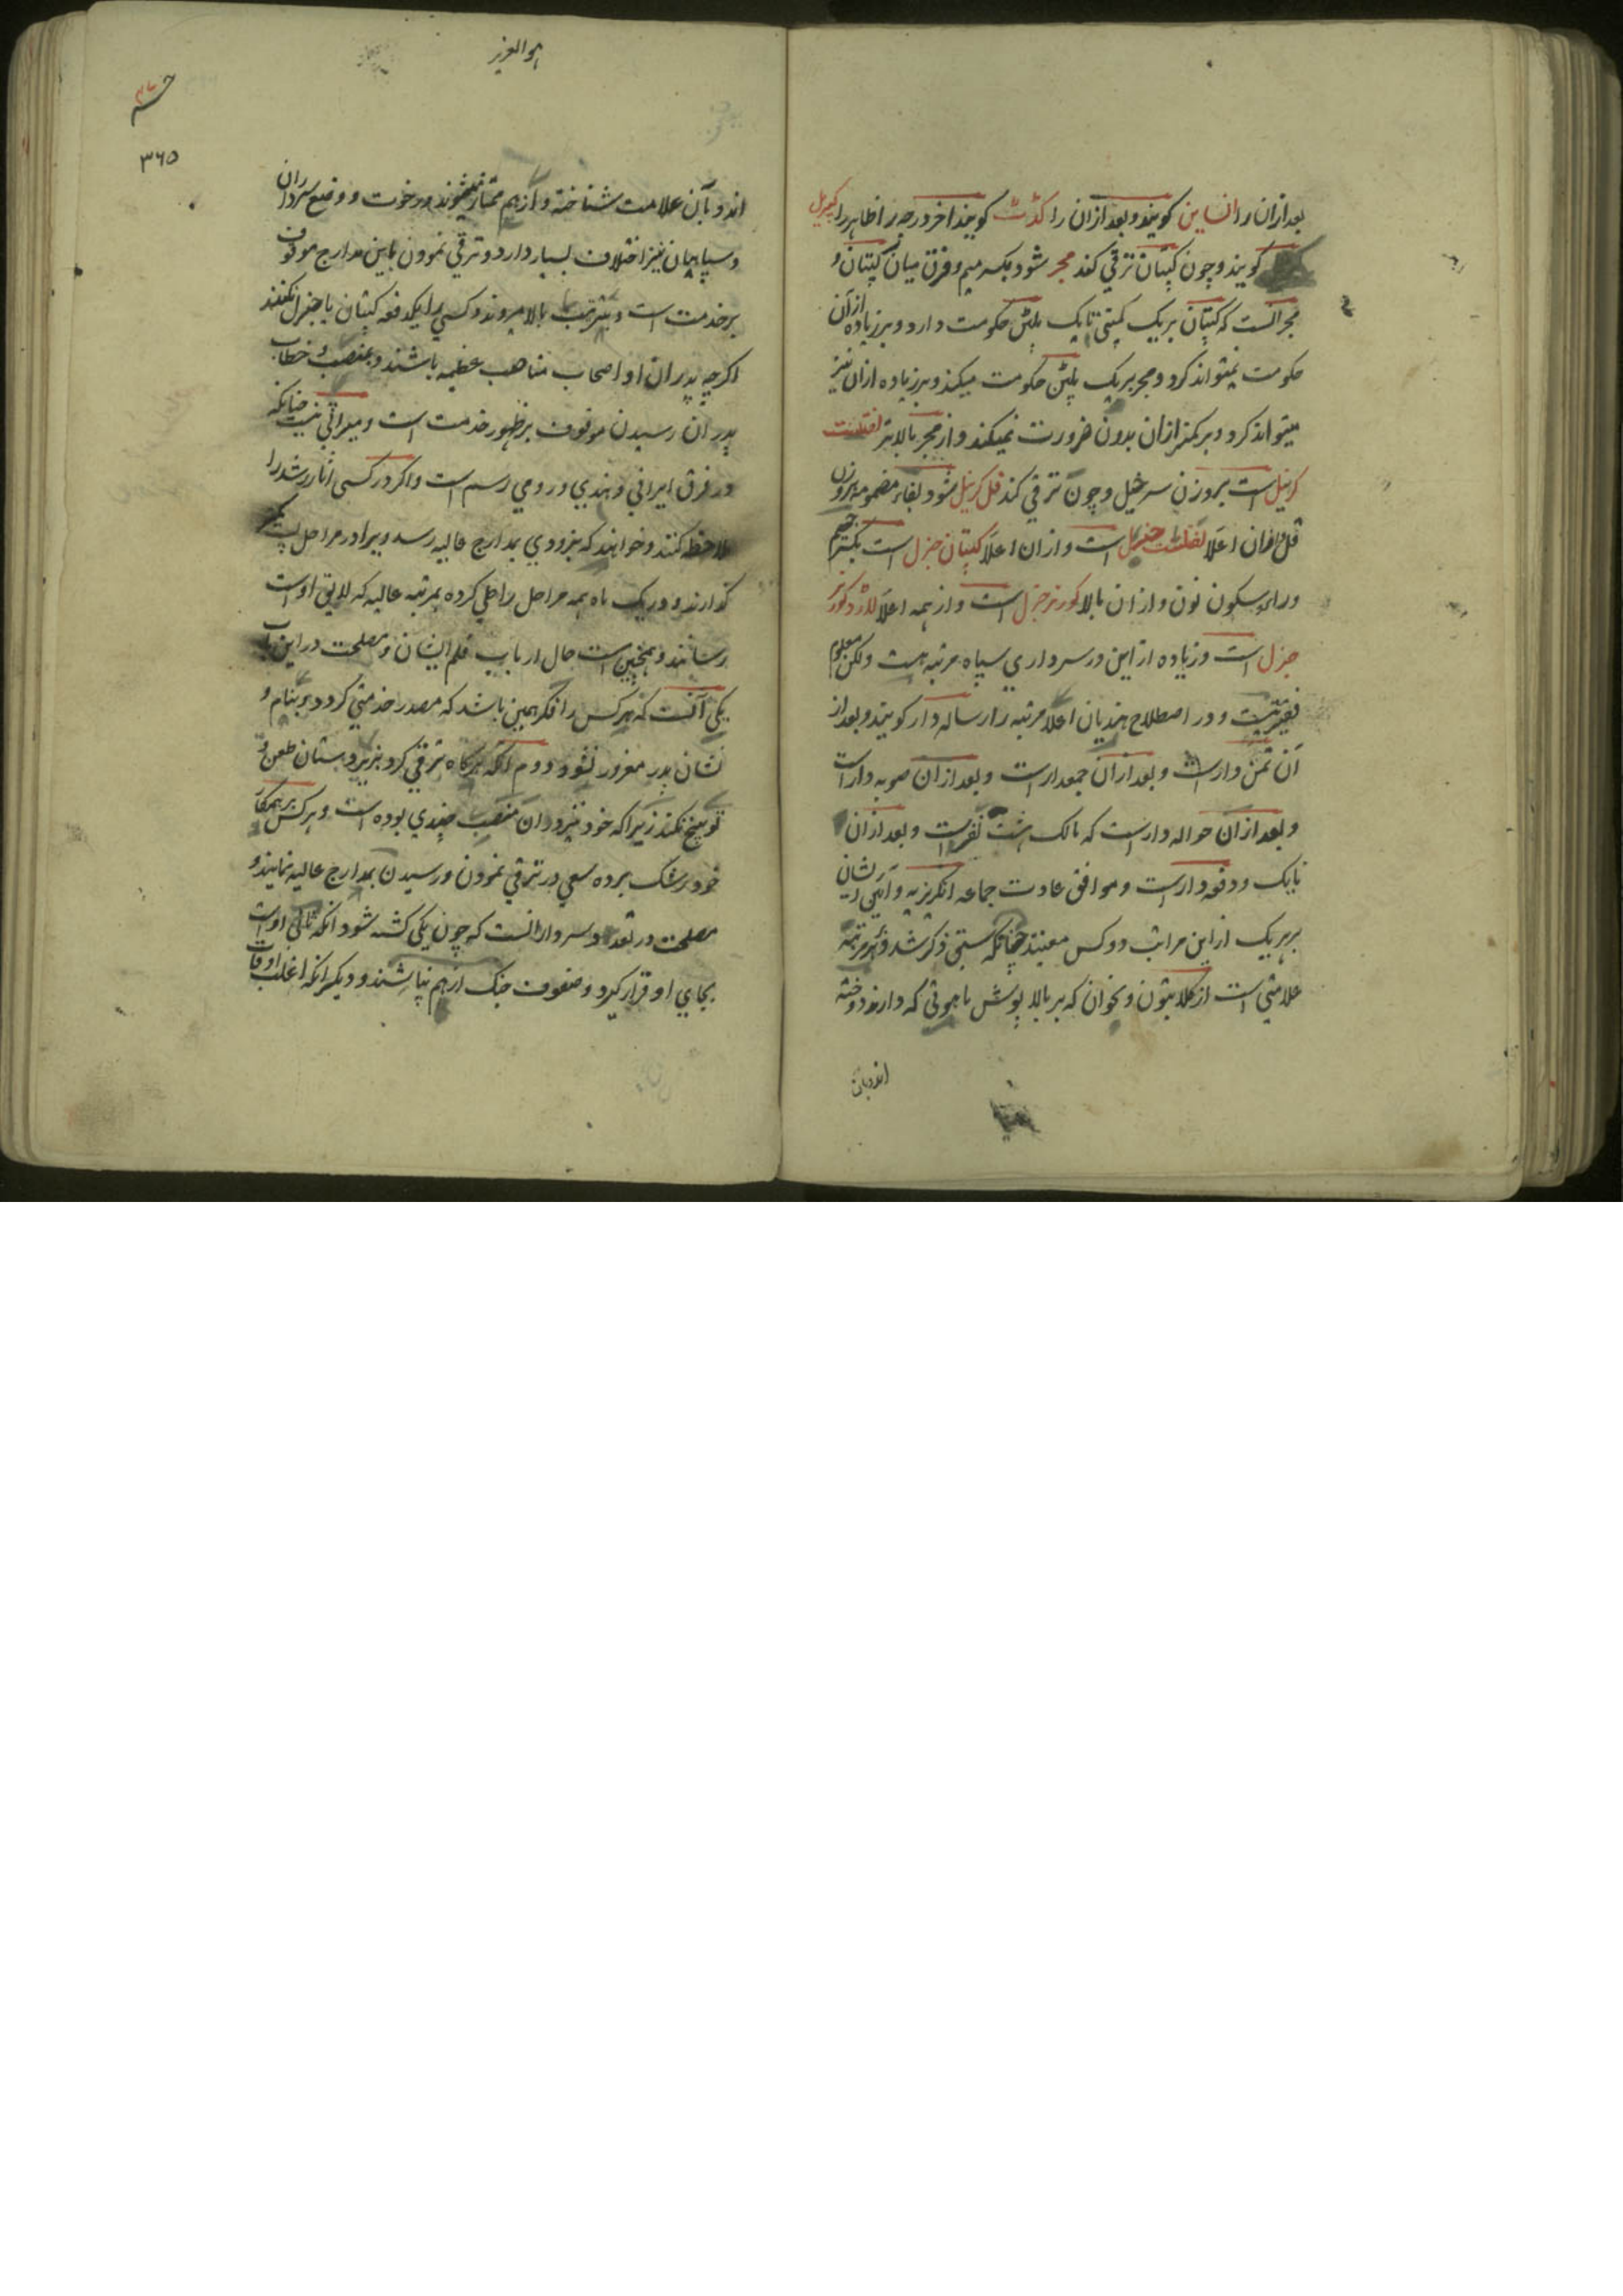 بعد ازان را انساین کویند و بعد ازان را کدت کویند اخر درجه را ظاهرا کمریل
کویند و چون کپتان ترقی کند مجر شود بکسر میم و فرق میان کپتان و
مجر انست که کپتان بر یک کمپنی تا یک پلتن حکومت دارد و بر زیاده از آن
حکومت نمیتواند کرد و مجر بر یک پلتن حکومت میکند و بر زیاده ازان نیز
میتواند کرد و بر کمتر ازان بدون ضرورت نمیکند و از مجر بالاتر لفتننت
کرنیل است بروزن سرخیل و چون ترقی کند فل کرنیل شود بفاء مضمومه بروزن
قل و ازان اعلا لفتننت جنرل است و ازان اعلا کپتان جنرل است بکسر جیم
و راء و سکون نون و ازان بالا کورنر جنرل است و از همه اعلا لارد کورنر
جنرل است و زیاده از این در سرداری سپاه مرتبه هست ولکن معلوم
فقیر نیست و در اصطلاح هندیان اعلا مرتبه را رساله دار کویند و بعد از
آن تمن دار است و بعد ازان جمعدار است و بعد ازان صوبه دار است
و بعد ازان حواله دار است که مالک هشت نفر است و بعد ازان
نایک و دفعه دار است و موافق عادت جماعه انکریزیه و آئین ایشان
بر هر یک از این مراتب دو کس معینند چنانکه سبق ذکر شد و هر مرتبه
علامتی است از کلابتون و نحو آن که بر بالا پوش ماهوتی که دارند دوخته
اند و بآن
هو العزیز
۳۶۵
اند و بآن علامت شناخته و از هم ممتاز میشوند و رخوت و وضع سرداران
و سپاهیان نیز اختلاف بسیار دارد و ترقی نمودن باین مدارج موقوف
بر خدمت است و بترتیب بالا میروند و کسی را یکدفعه کپتان یا جنرل نکنند
اکرچه پدران او اصحاب مناصب عظیمه باشند و بمنصب و خطاب
پدران رسیدن موقوف بر ظهور خدمت است و میراثی نیست چنانکه
در فرق ایرانی و هندی و رومی رسم است و اکر در کسی اثار رشد را
ملاحظه کنند و خواهند که بزودی بمدارج عالیه رسد ویرا در مراحل پست
کذارند و در یک ماه همه مراحل را طی کرده بمرتبه عالیه که لایق اوست
رسانند و همچنین است حال ارباب قلم ایشان و مصلحت در این باب
یکی آنست که هر کس را فکر همین باشد که مصدر خدمتی کردد و بنام و
نشان پدر مغرور نشود و دوم انکه هرکاه ترقی کرد بزیردستان طعن و
توبیخ نکند زیراکه خود نیز در ان منصب چندی بوده است و هر کس بر همکار
خود رشک برده سعی در ترقی نمودن و رسیدن بمدارج عالیه نمایند و
مصلحت در تعدد سردار انست که چون یکی کشته شود انکه ثانی اوست
بجای او قرار کیرد و صفوف جنک از هم نپاشند و دیکر انکه اغلب اوقات